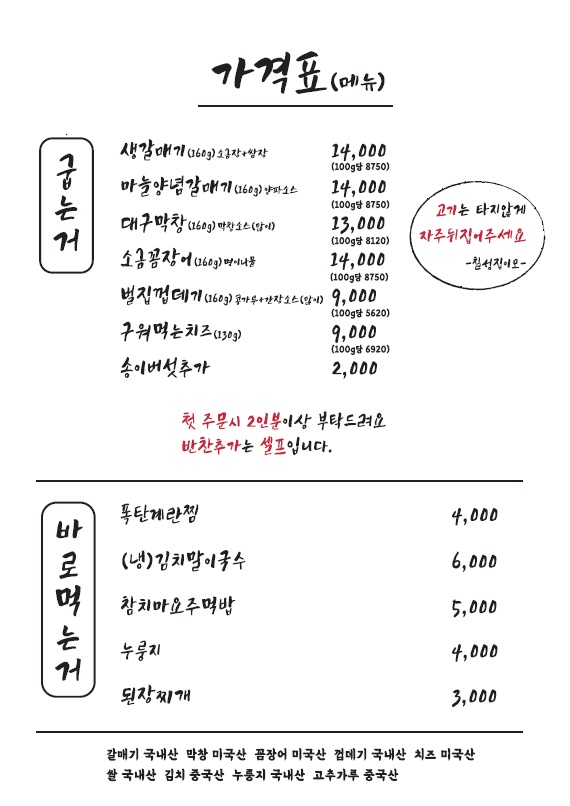 가격표(메뉴)
굽는거
생갈매기(160g)소금장+쌈장 14,000
(100g당 8750)
마늘양념갈매기(160g)양파소스 14,000
(100g당 8750)
대구막창(160g)막장소스(많이) 13,000
(100g당 8120)
소금꼼장어(160g)명이나물 14,000
(100g당 8750)
벌집껍데기(160g)콩가루+간장소스(많이) 9,000
(100g당 5620)
구워먹는치즈(130g) 9,000
(100g당 6920)
송이버섯추가 2,000
고기는 타지않게
자주뒤집어주세요
-칠성집이모-
첫 주문시 2인분이상 부탁드려요
반찬추가는 셀프입니다.
바로먹는거
폭탄계란찜 4,000
(냉)김치말이국수 6,000
참치마요주먹밥 5,000
누룽지 4,000
된장찌개 3,000
갈매기 국내산 막창 미국산 꼼장어 미국산 껍데기 국내산 치즈 미국산
쌀 국내산 김치 중국산 누룽지 국내산 고추가루 중국산